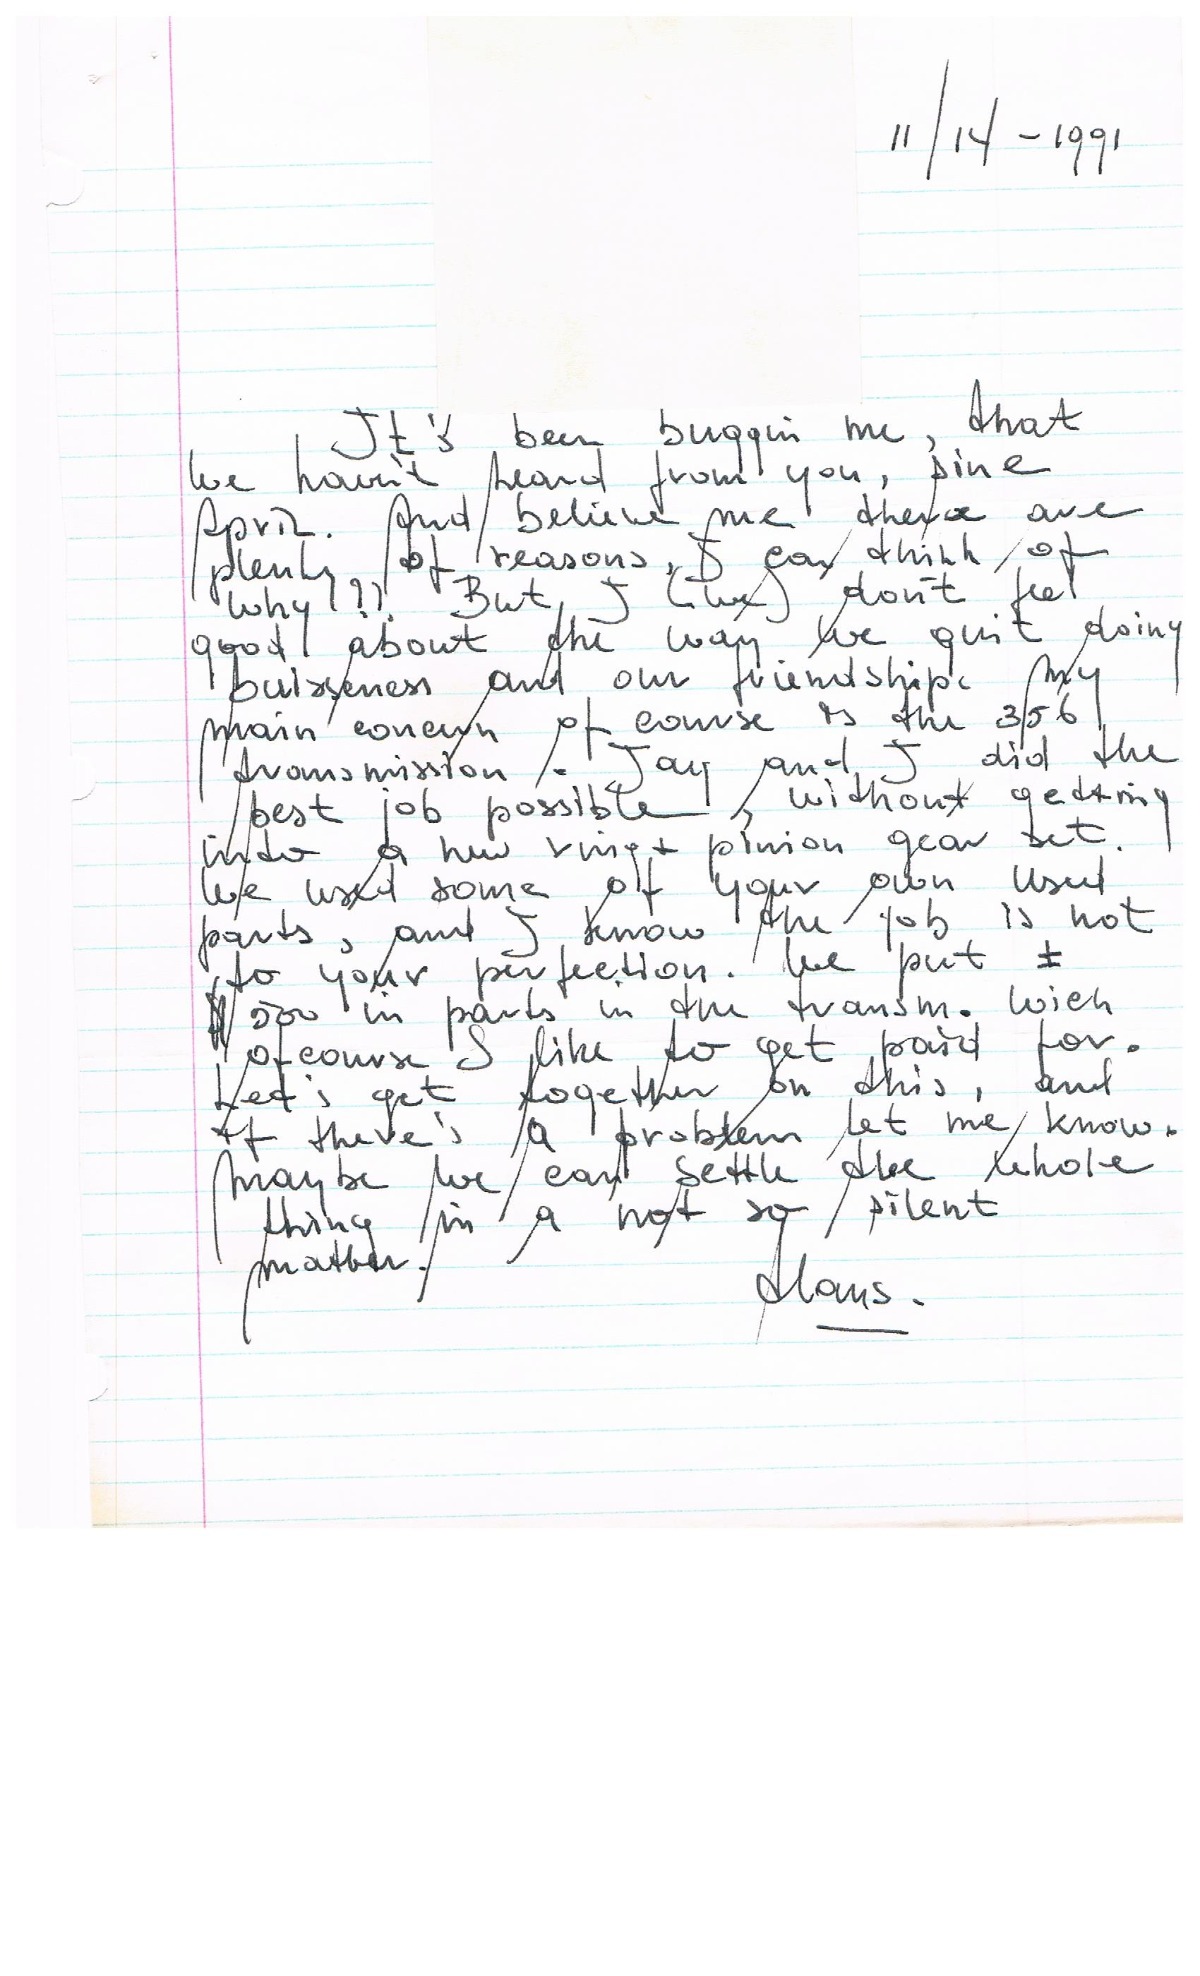 11/14-1991
It's been buggin me, that
we havn't heard from you, sine
April. And believe me there are
plenty of reasons, I can think of
why!?? But, I (we) don't feel
good about the way we quit doing
buisseness and our friendship. My
main concern of course is the 356
transmission. Jay and I did the
best job possible, without getting
into a new ring + pinion gear set.
We used some of your own used
parts, and I know the job is not
to your perfection. We put ±
$500 in parts in the transm. wich
ofcourse I like to get paid for.
Let's get together on this, and
if there's a problem let me know.
Maybe we can settle the whole
thing in a not so silent
matter.
Hans.